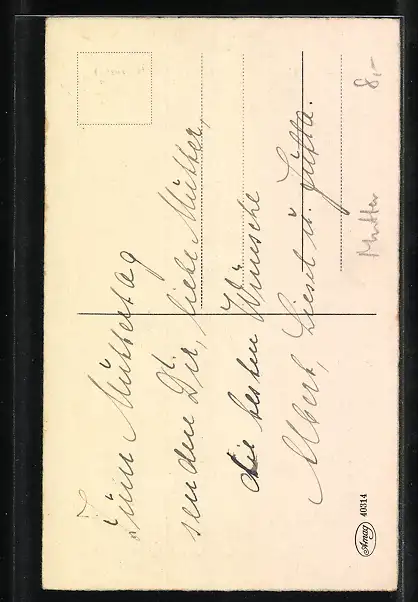 Zum Muttertag
senden Dir, liebe Mutter,
die besten Wünsche
Albert, Liesel u. Jutta.
Mutter
8,-
Amag
40314